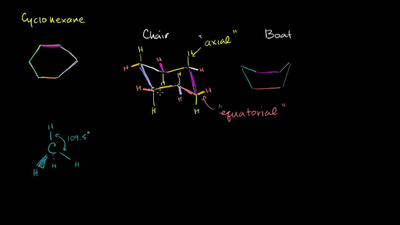 Cyclohexane
Chair
Boat
"axial"
H
H
H
H
H
H
H
H
H
H
H
H
"equatorial"
H
109.5°
C
H
H
H